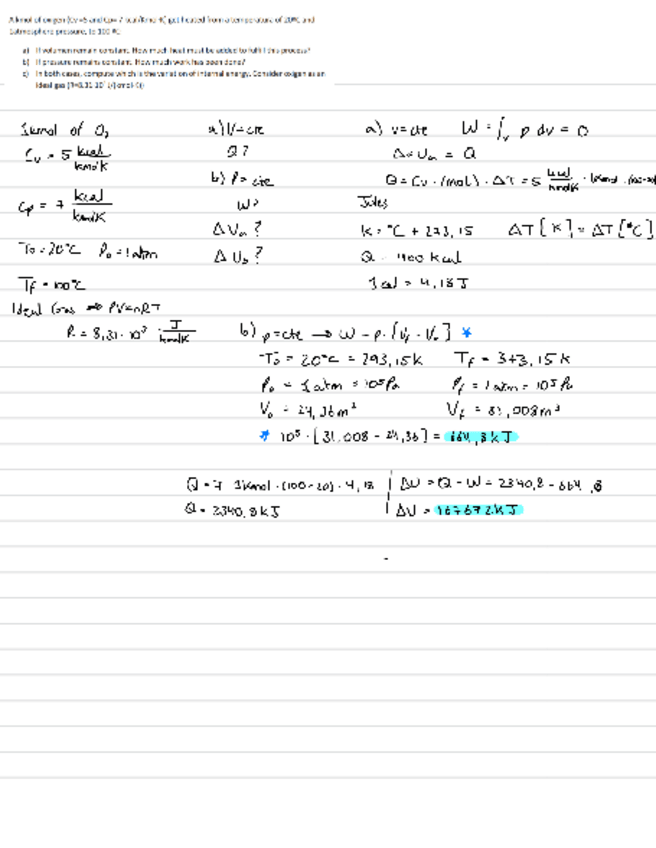 A kmol of oxigen (Cv=5 and Cp= 7 kcal/Kmol·K) get heated from a temperature of 20ºC and
1atmosphere pressure, to 100 ºC.
a) If volumen remain constant. How much heat must be added to fulfil this process?
b) If pressure remains constant. How much work has been done?
c) In both cases, compute which is the variation of internal energy. Consider oxigen as an
ideal gas
1kmol of O₂
Cv = 5 kcal/kmol K
Cp = 7 kcal/kmol K
T₀ = 20°C P₀ = 1 atm
Tf = 100°C
Ideal Gas ⇒ PV=nRT
R = 8,31 · 10³ · J/kmol K
a) V=cte
Q?
b) P = cte
W?
ΔUa ?
ΔUb ?
a) v=cte W = ∫v p dv = 0
Δ Ua = Q
Q = Cv · (mol) · ΔT = 5 kcal/kmol K · 1kmol
K = °C + 273,15 ΔT [K] = ΔT [°C]
Q = 400 kcal
1 cal = 4,18 J
b) p=cte → W = p · [Vf - V₀] *
T₀ = 20°C = 293,15 K Tf = 373,15 K
P₀ = 1 atm = 10⁵ Pa Pf = 1 atm = 10⁵ Pa
V₀ = 24,36 m³ Vf = 31,008 m³
* 10⁵ · [31,008 - 24,36] = 664,8 kJ
Q = 7 · 1kmol · (100-20) · 4,18 ΔU = Q - W = 2340,8 - 664,8
Q = 2340,8 kJ ΔU =